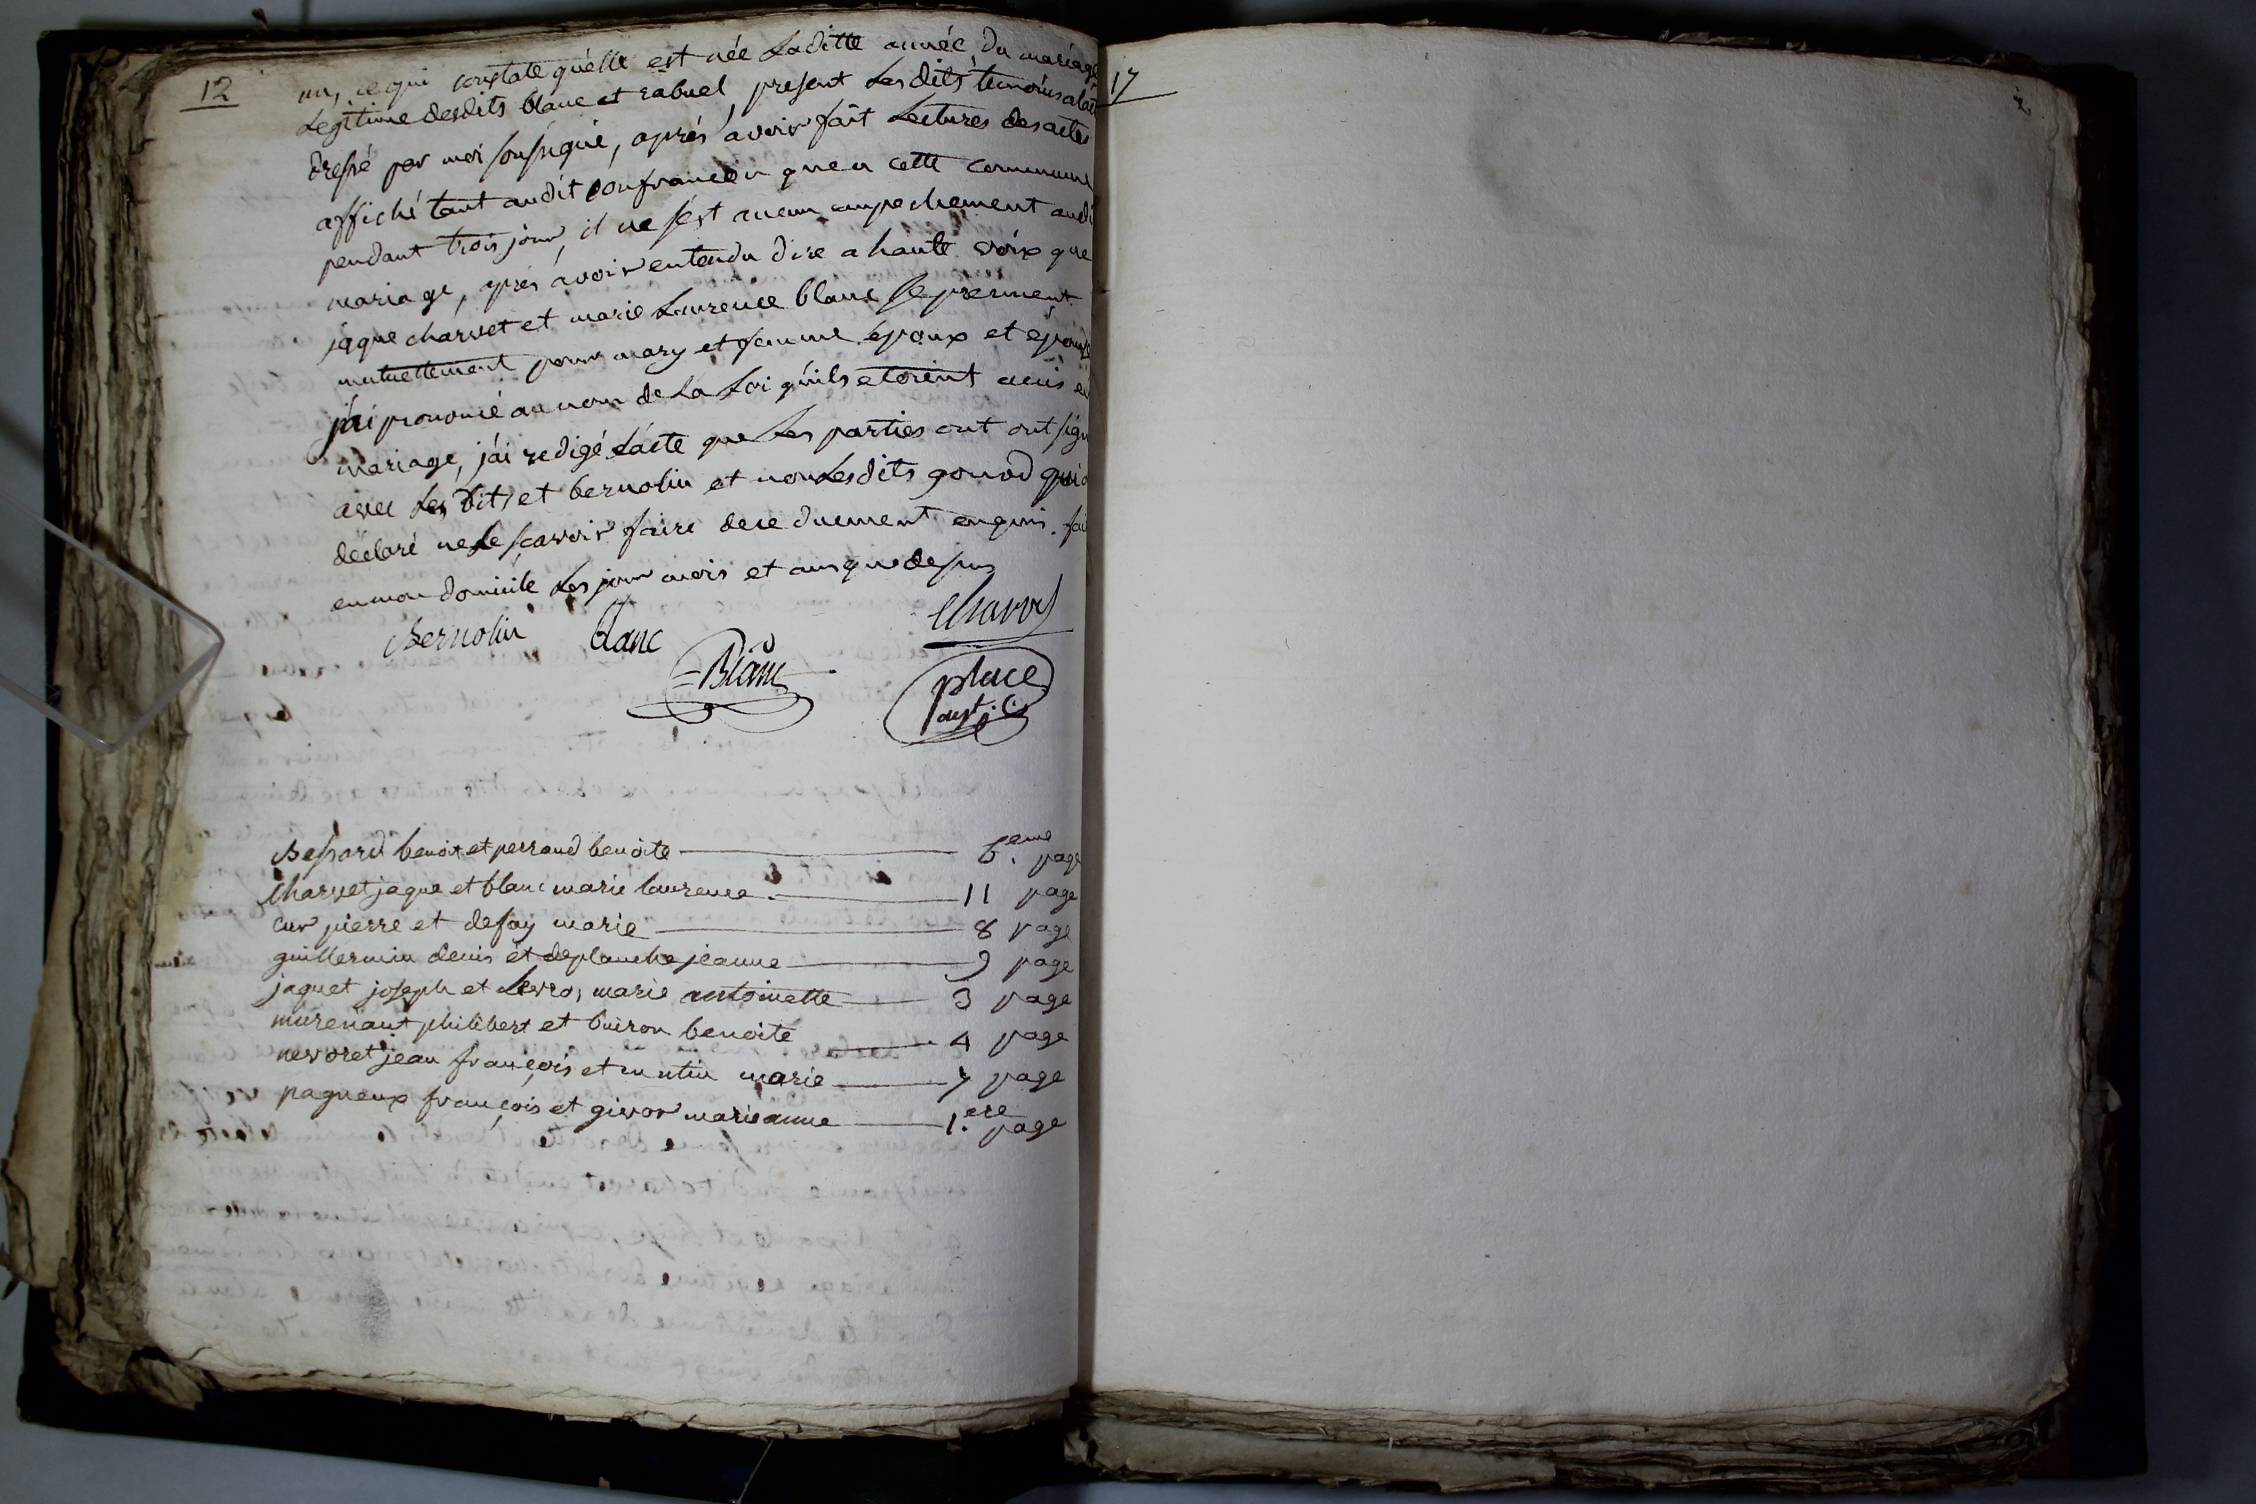 12
un, ce qui constate qu'elle est née Laditte année, du mariage
Legitime desdits blanc et rabuel, présent Lesdits temoins alacte
dressé par moi soussigné, aprés avoir fait Lectures des actes
affiché tant audit Confrancon que a cette commune
pendant trois jour, il ne s'est aucun empechement audit
mariage, aprés avoir entendu dire a haute voix que
jaque charvet et marie Laurence blanc se prennent
mutuellement pour mary et femme, epoux et epouse
j'ai prononcé au nom de La Loi qu'ils etoient unis en
mariage, j'ai redigé Lacte que Les parties ont ont sign
avec Les Dits et bernolin et non Lesdits gonod qui o
déclaré ne Le sçavoir faire de ce duement enquis. fai
en mon domicile Les jour mois et ans que dessus
Bernolin blanc Charvet
Blanc place
aust. C.
Bessard benoit et perraud benoite 6.eme page
Charvet jaque et blanc marie laurence 11 page
cur pierre et defay marie 8 page
guillermin denis et deplanche jeanne 9 page
jaquet joseph et Levros marie antoinette 3 page
murenaut philibert et buiron benoite 4 page
nevoret jean françois et marie 7 page
pagneux françois et givor marieanne 1.ere page
17